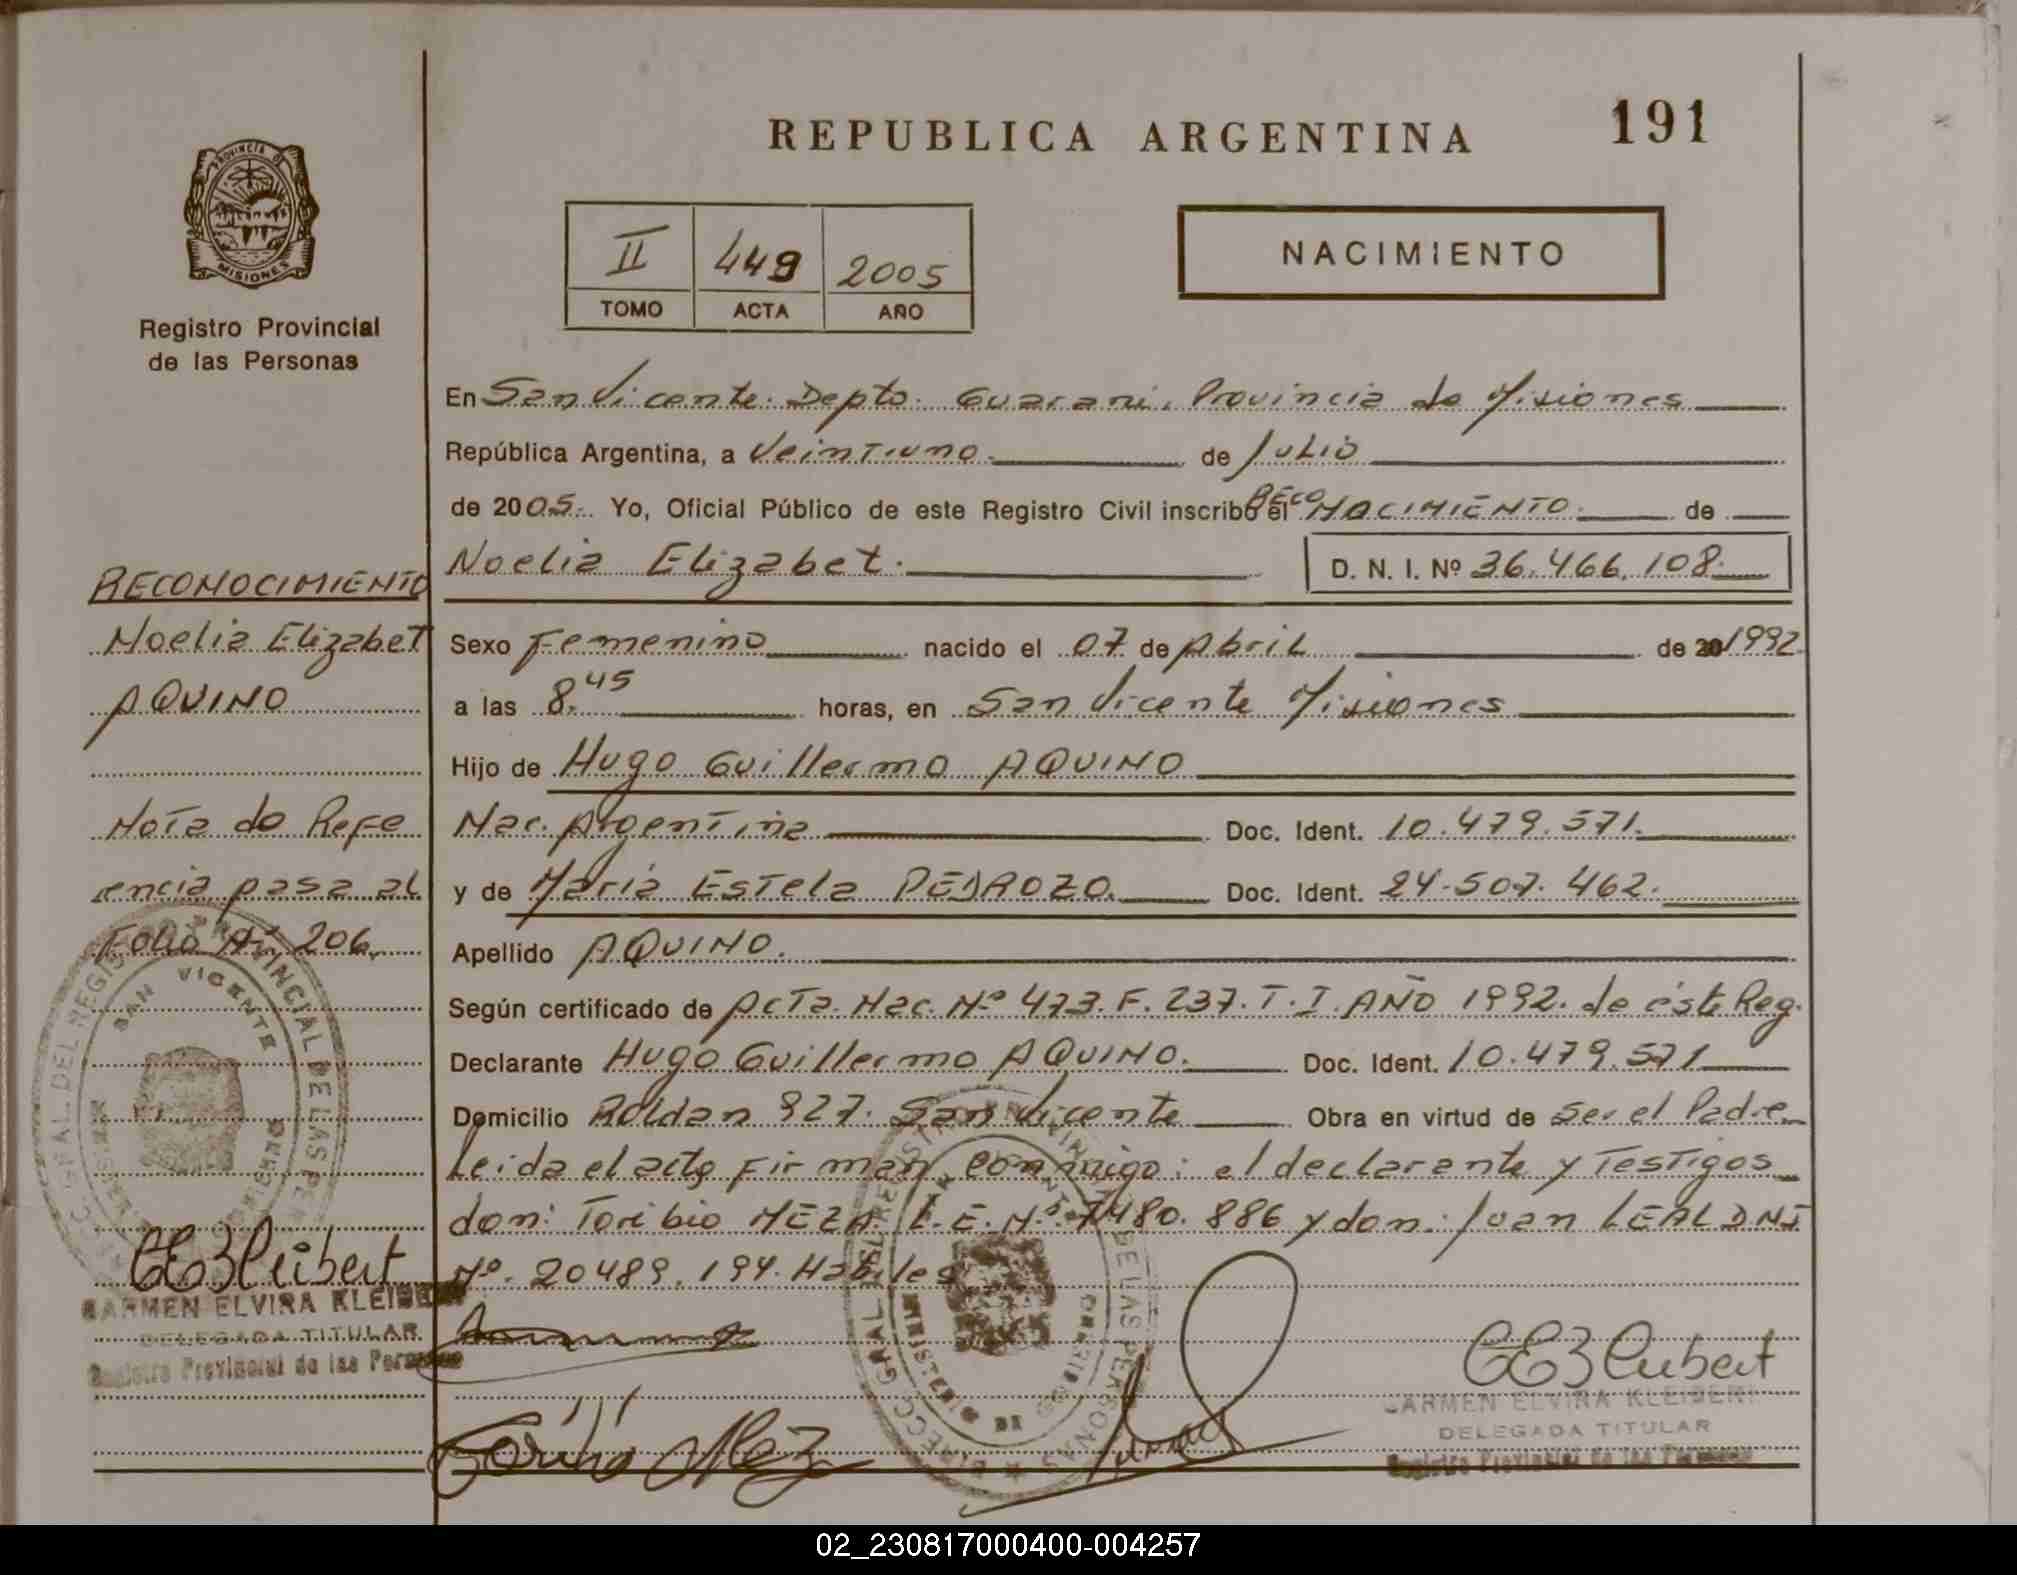 REPUBLICA ARGENTINA
191
PROVINCIA DE
MISIONES
Registro Provincial
de las Personas
II 449 2005
TOMO ACTA AÑO
NACIMIENTO
En San Vicente. Depto. Guarani. Provincia de Misiones
República Argentina, a Veintiuno. de Julio
de 2005. Yo, Oficial Público de este Registro Civil inscribo el RECO NACIMIENTO. de
Noelia Elizabet. D. N. I. Nº 36.466.108.
Sexo Femenino nacido el 07 de Abril de 20 1992
a las 8.45 horas, en San Vicente Misiones
Hijo de Hugo Guillermo AQUINO
Nac. Argentina Doc. Ident. 10.479.571.
y de Maria Estela PEDROZO. Doc. Ident. 24.507.462.
Apellido AQUINO.
Según certificado de Acta. Nac. Nº 473. F. 237. T. I. AÑO 1992. de éste Reg.
Declarante Hugo Guillermo AQUINO. Doc. Ident. 10.479.571
Domicilio Roldan 927. San Vicente Obra en virtud de Ser el Padre
Leida el acta firman conmigo: el declarante y Testigos
don: Toribio MEZA. L.E. Nº 7480.886 y don: Juan LEAL DNI
Nº. 20489.194. Habiles
RECONOCIMIENTO
Noelia Elizabet
AQUINO
Nota de Refe
rencia pasa al
Folio Nº 206.
SAN VICENTE
CARMEN ELVIRA KLEIBERT
DELEGADA TITULAR
Registro Provincial de las Personas
CARMEN ELVIRA KLEIBERT
DELEGADA TITULAR
Registro Provincial de las Personas
02_230817000400-004257